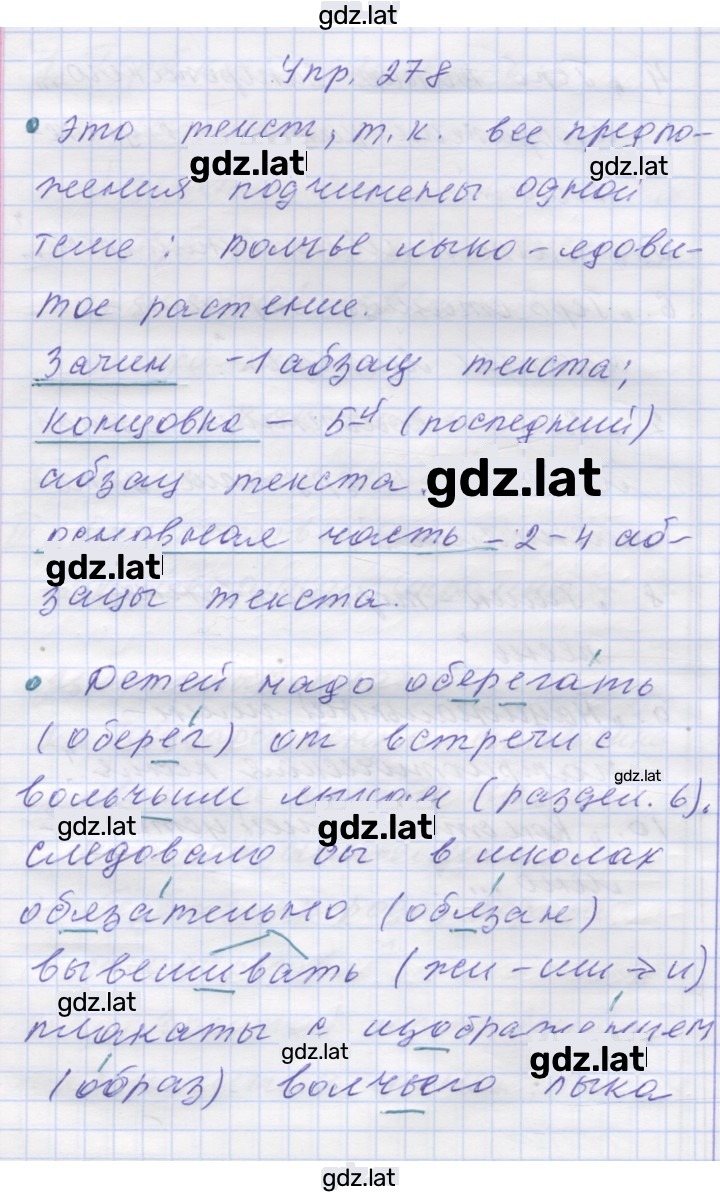 gdz.lat
Упр. 278
• Это текст, т.к. все предло-
gdz.lat gdz.lat
жения подчинены одной
теме: Волчье лыко – ядови-
тое растение.
Зачин – 1 абзац текста;
концовка – 5-й (последний)
абзац текста.
gdz.lat
основная часть – 2-4 аб-
gdz.lat
зацы текста.
• Детей надо оберегать
(оберег) от встречи с
gdz.lat
вольчьим лыком (раздел. ь).
gdz.lat gdz.lat
следовало бы в школах
обязательно (обязан)
вывешивать (жи-ши → и)
gdz.lat
плакаты с изображением
gdz.lat gdz.lat
(образ) волчьего лыка
gdz.lat